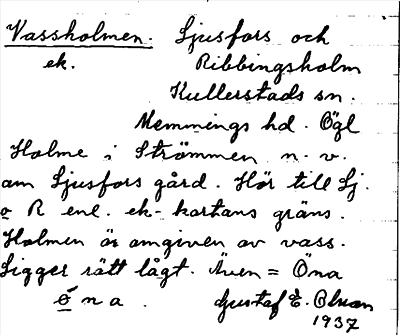 Vassholmen. Ljusfors och
ek. Ribbingsholm
Kullerstads sn.
Memmings hd. Ögl
Holme i Strömmen n. v.
om Ljusfors gård. Hör till Lj.
o R enl. ek-kartans gräns.
Holmen är omgiven av vass.
Ligger rätt lågt. Även = Öna
ö n a . Gustaf E. Olson
1937